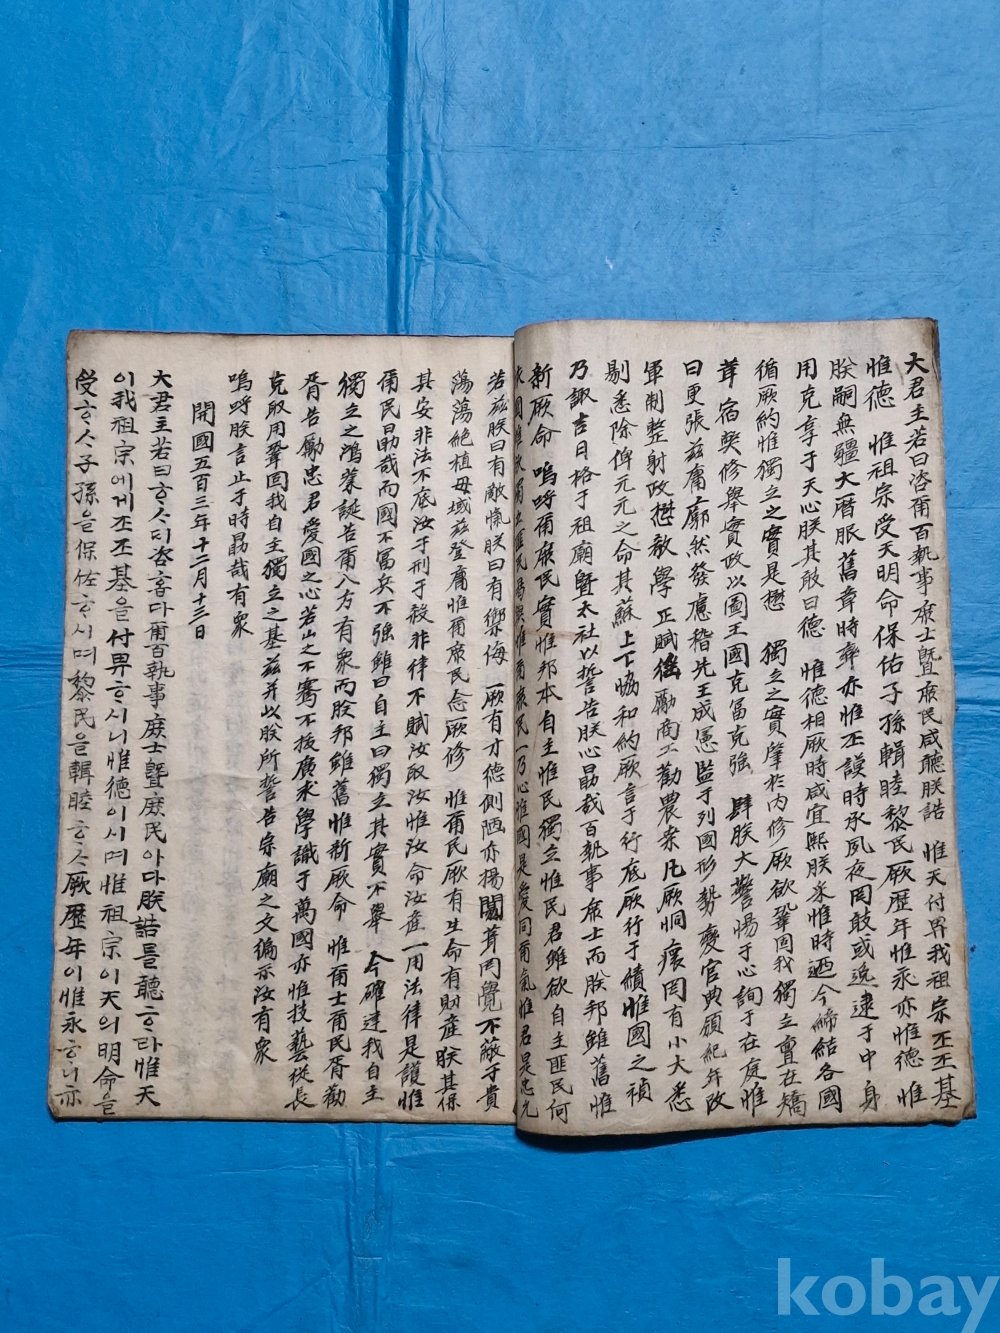 大君主若曰咨爾百執事庶士曁庶民咸聽朕誥 惟天付畀我祖宗丕丕基
惟德 惟祖宗受天明命保佑子孫輯睦黎民厥歷年惟永亦惟德惟
朕嗣無疆大曆服舊韋時率亦惟丕謨時承夙夜罔敢或逸逮于中身
用克享于天心朕其敢曰德 惟德相厥時咸宜熙朕永惟時迺今締結各國
循厥約惟獨立之實是懋 獨立之實肇於內修厥欲鞏固我獨立亶在矯
革宿獘修舉實政以圖王國克富克强 肆朕大警惕于心詢于在庭惟
曰更張玆庸廓然發慮稽先王成憲監于列國形勢變官典頒紀年改
軍制整財政懋敎學正賦徭勵商工勸農桑凡厥恫瘝罔有小大悉
剔悉除俾元元之命其蘇上下恊和約厥言于行底厥行于績惟國之禎
乃諏吉日格于祖廟曁太社以誓告朕心勗哉百執事庶士而朕邦雖舊惟
新厥命 嗚呼爾庶民實惟邦本自主惟民獨立惟民君雖欲自主匪民何
依國雖欲獨立匪民曷與惟爾庶民一乃心惟國是愛同爾氣惟君是忠允
若玆朕曰有敵愾朕曰有禦侮 厥有才德側陋亦揚闒茸罔覺不蔽于貴
蕩蕩絕植毋域玆登庸惟爾庶民念厥修 惟爾民厥有生命有財產朕其保
其安非法不底汝于刑于殺非律不賦汝取汝惟汝命汝產一用法律是護惟
爾民勗哉而國不富兵不强雖曰自主曰獨立其實不擧 今確建我自主
獨立之鴻業誕告爾八方有衆而朕邦雖舊惟新厥命 惟爾士爾民胥勸
胥告勵忠君愛國之心若山之不騫不拔廣求學識于萬國亦惟技藝從長
克取用鞏固我自主獨立之基玆并以朕所誓告宗廟之文徧示汝有衆
嗚呼朕言止于時勗哉有衆
開國五百三年十二月十三日
大君主若曰ᄒᆞ사ᄃᆡ咨홉다爾百執事庶士曁庶民아다朕誥를聽ᄒᆞ라惟天
이我祖宗에게丕丕基을付畀ᄒᆞ시니惟德이시며惟祖宗이天의明命을
受ᄒᆞ사子孫을保佐ᄒᆞ시며黎民을輯睦ᄒᆞ사厥歷年이惟永ᄒᆞ니亦